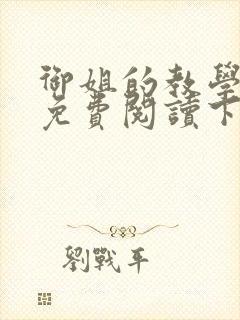 御姐的教學
免費閱讀下
劉戰平